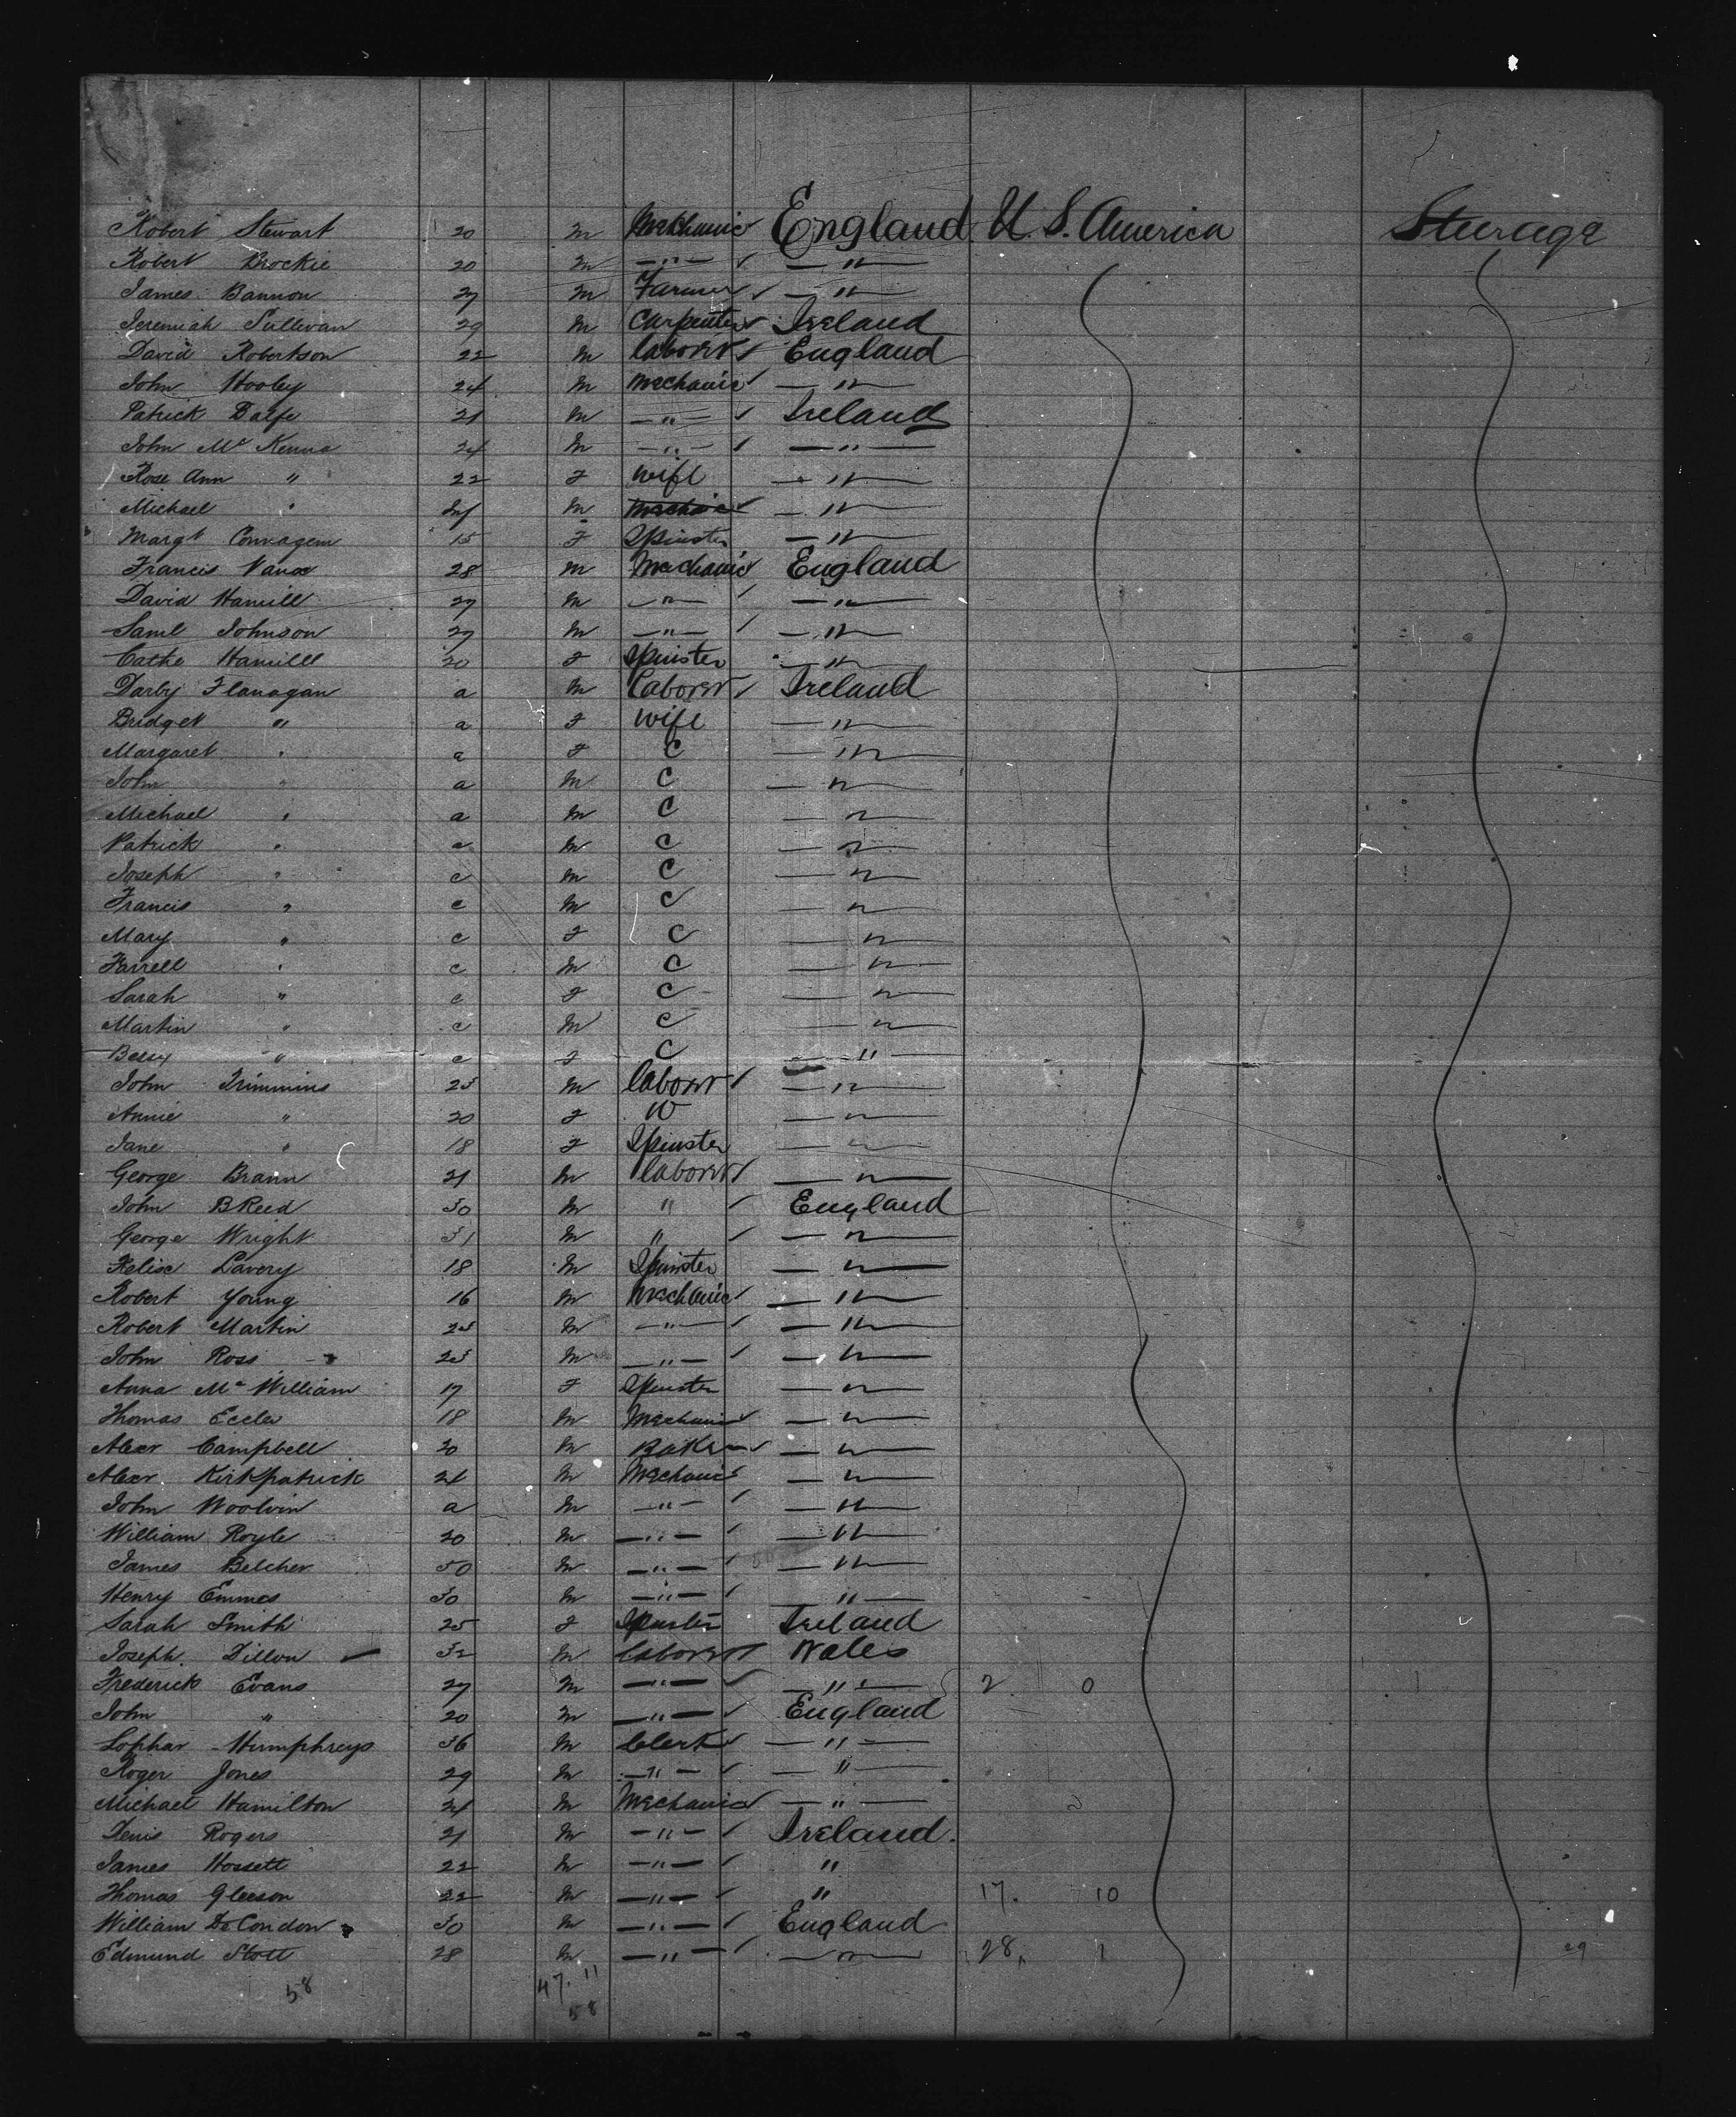 Robert Stewart 20 m Mechanic England U. S. America Steerage
Robert Brockie 20 m — " — — " —
James Bannon 27 m Farmer — " —
Jeremiah Sullivan 29 m Carpenter Ireland
David Robertson 22 m laborer England
John Hooley 24 m mechanic — " —
Patrick Dalfe 21 m — " — Ireland
John Mc Kenna 24 m — " — — " —
Rose Ann " 22 F wife — " —
Michael " m — " —
Margt 15 F Spinster — " —
Francis 28 m Mechanic England
David Hamill 27 m — " — — " —
Saml Johnson 27 m — " — — " —
Cathe Hamill 20 F Spinster — " —
Darby Flanagan a m laborer Ireland
Bridget " a F wife — " —
Margaret " a F C — " —
John " a m C — " —
Michael " a m C — " —
Patrick " a m C — " —
Joseph " c m C — " —
Francis " c m C — " —
Mary " c F C — " —
Farrell " c m C — " —
Sarah " c F C — " —
Martin " c m C — " —
Bessy " c F C — " —
John Trimmins 25 m laborer — " —
Annie " 20 F W — " —
Jane " 18 F Spinster — " —
George Brann 21 m laborer — " —
John B Reed 30 m " England
George Wright 31 m " — " —
Felise Lavery 18 m Spinster — " —
Robert Young 16 m Mechanic — " —
Robert Martin 25 m — " — — " —
John Ross 25 m — " — — " —
Anna Mc William 17 F Spinster — " —
Thomas Eccles 18 m Mechanic — " —
Alexr Campbell 20 m Baker — " —
Alexr Kirkpatrick 21 m Mechanic — " —
John Woolvin a m — " — — " —
William Royle 20 m — " — — " —
James Belcher 50 m — " — — " —
Henry Emmes 30 m — " — — " —
Sarah Smith 25 F Spinster Ireland
Joseph Dillon 32 m laborer Wales
Frederick Evans 27 m — " — — " — 2 0
John " 20 m — " — England
Humphreys 36 m Clerk — " —
Roger Jones 29 m — " — — " —
Michael Hamilton 21 m Mechanic — " —
Denis Rogers 21 m — " — Ireland.
James Hossett 22 m — " — "
Thomas Gleeson 22 m — " — " 17. 10
William De Condon 30 m — " — England
Edmund Stott 28 m — " — — " — 28, 1 29
58 47. 11
58